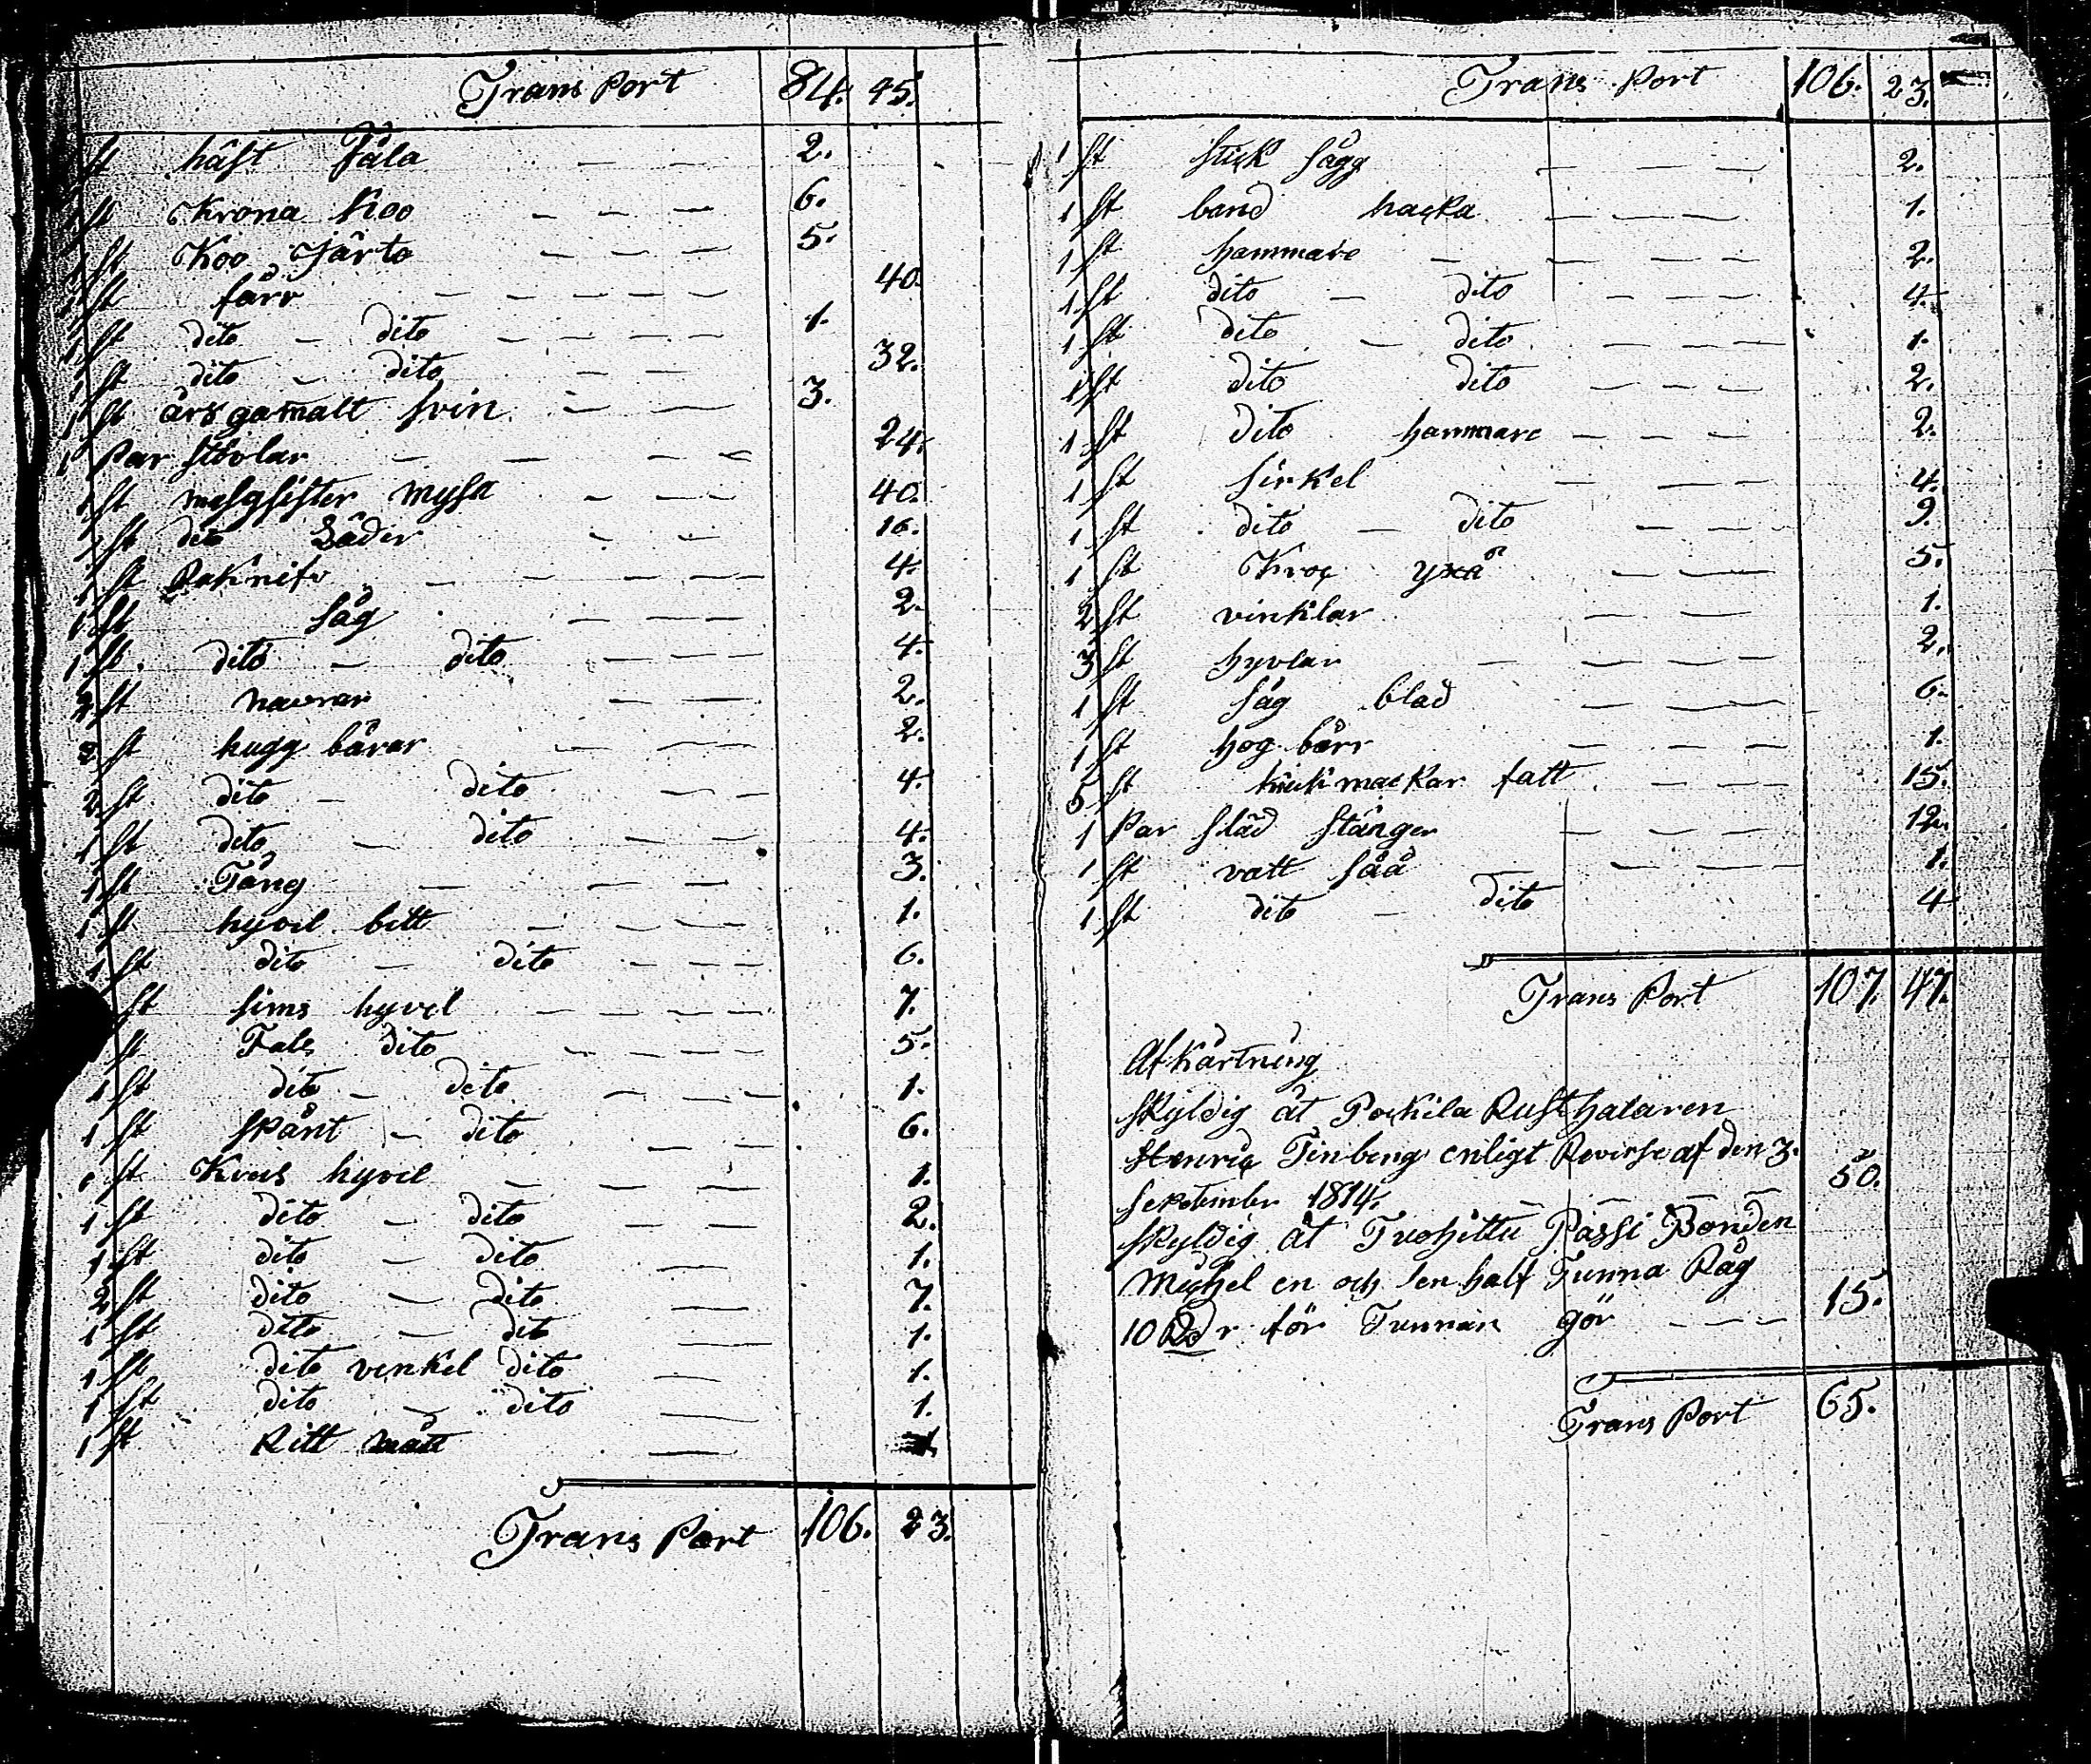 Trans Port 84. 45.
st häst Fåla — — 2.
1 st Krona Koo — — — 6.
1 st Koo Järto — — — 5.
1 st fårr — — — — — 40.
1 st dito — dito — — — — 1.
1 st dito — dito — — 32.
1 st års gamalt svin — — 3.
1 Par stövlar — — — — 24.
1 st mysa — — — 40.
1 st dito Säder — — 16.
1 st Raknifv — — — — — 4.
1 st Såg — — — 2.
1 st. dito — dito — — — 4.
2 st navrar — — 2.
2 st hugg bårar — — — 2.
2 st dito — dito — — 4.
1 st dito — dito — — — 4.
1 st Tång — — — 3.
1 st hyvel bett — — — — 1.
1 st dito — dito — — — 6.
st sims hyvel — — — — — 7.
st Fals dito — — — — 5.
1 st dito — dito — — — 1.
1 st Spånt — dito — — 6.
1 st hyvel — — — 1.
1 st dito — dito — — 2.
1 st dito — dito — 1.
2 st dito — dito — 7.
1 st dito — dito — 1.
1 st dito venkel dito — 1.
1 st dito — dito — 1.
1 st Ritt mått —
Trans Port 106. 23.
Trans Port 106. 23.
1 st stick sågg — — — 2.
1 st band hacka — — — — 1.
1 st hammare — — — — — 2.
1 st dito — dito — — — 4.
1 st dito — dito — — — 1.
1 st dito dito — — — — 2.
1 st dito hammare — — — — 2.
1 st sirkel — — — 4.
1 st dito — dito — — — 9.
1 st yxa — — — 5.
2 st vinklar — — 1.
3 st hyvlar — — — — 2.
1 st såg blad — — — 6.
1 st hog bårr — — — — 1.
5 st fatt — — — 15.
1 Par släd stänger — — — — 12.
1 st vatt såå — — — — 1.
1 st dito — dito 4
Trans Port 107. 47.
Afkårtning
Skyldig åt Pockila Rusthalaren
Henric Tinberg enligt Reverse af den 3.
September 1814. — — — — 50.
skyldig åt Tuohittu Passi Bonden
Michel en och en half Tunna Råg
10 Rdr för Tunnan gör — — — 15.
Trans Port 65.